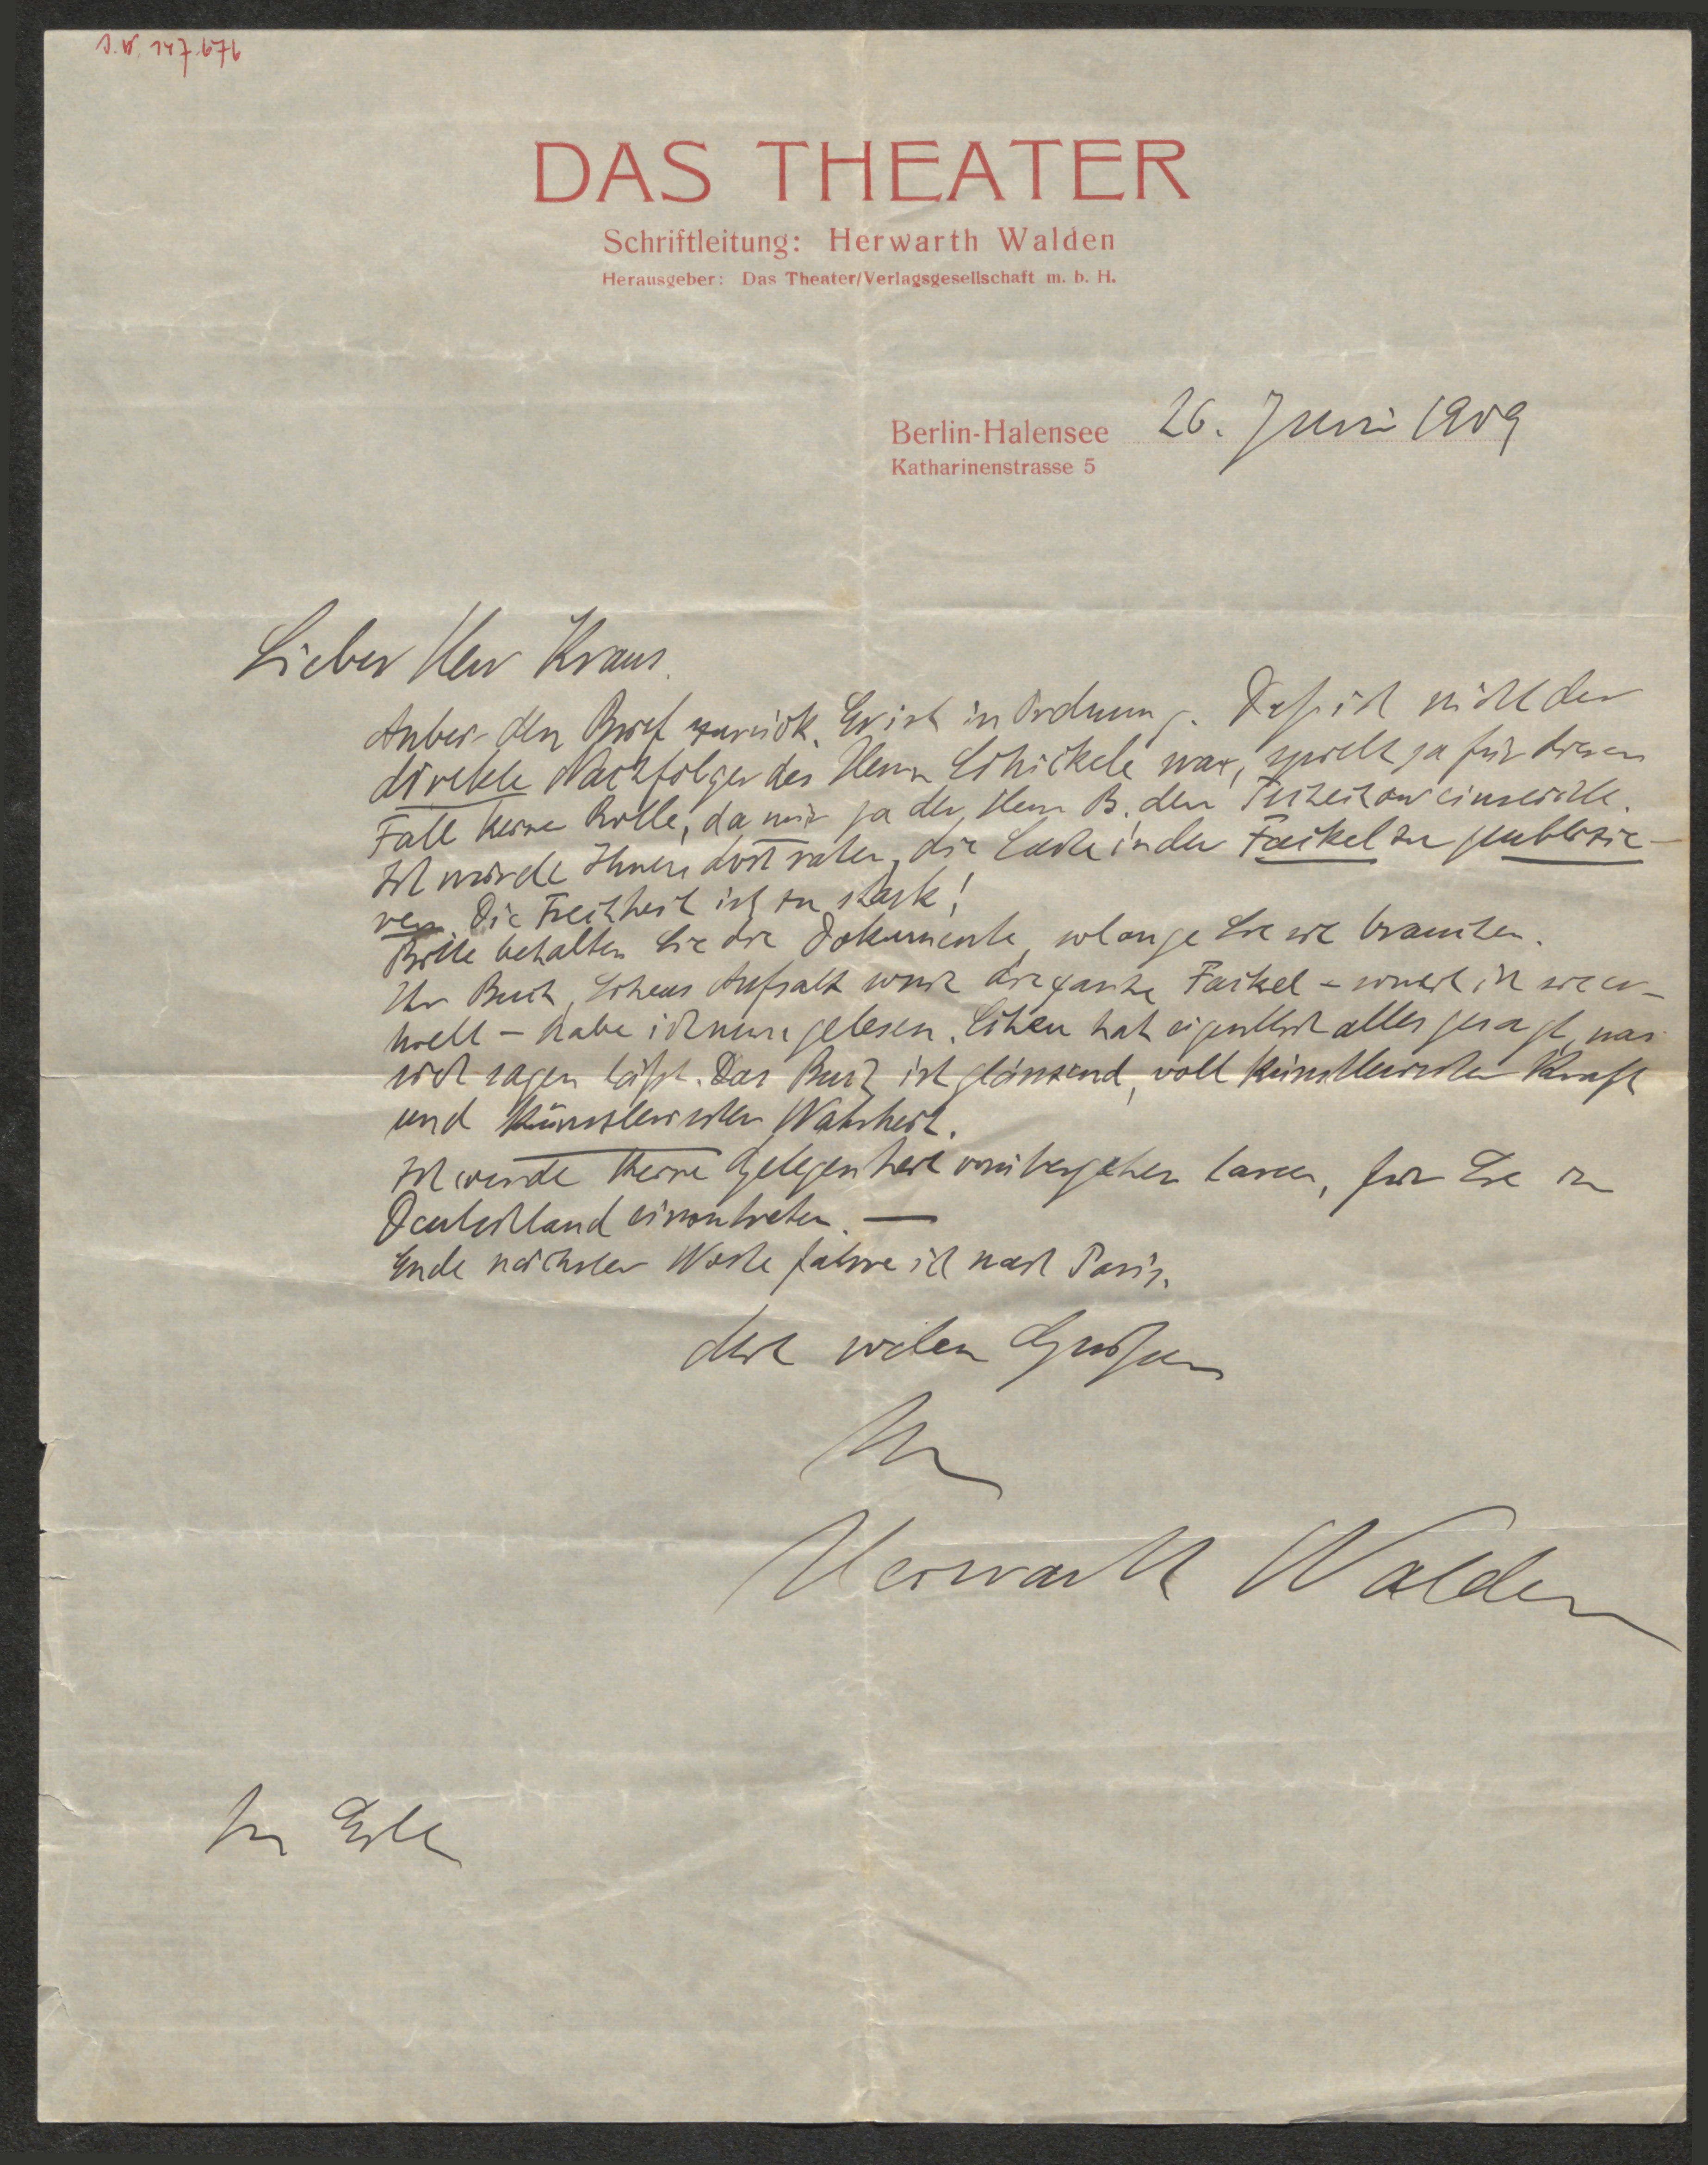 I.N. 147.676
DAS THEATER
Schriftleitung: Herwarth Walden
Herausgeber: Das Theater/Verlagsgesellschaft m. b. H.
Berlin-Halensee 26. Juni 1909
Katharinenstrasse 5
Lieber Herr Kraus,
Anbei den Brief zurück. Er ist in Ordnung. Daß ich nicht der
direkte Nachfolger des Herrn Schickele war, spielt ja für diesen
Fall keine Rolle, da mir ja der Herr B. den einreichte.
Ich würde Ihnen doch raten, die Sache in der Fackel zu publizie-
ren. Die Frechheit ist zu stark!
Bitte behalten Sie die Dokumente, solange Sie sie brauchen.
Ihr Buch, Scheus Aufsatz und die ganze Fackel – soweit ich sie er-
hielt – habe ich nun gelesen. Scheu hat eigentlich alles gesagt, was
sich sagen läßt. Das Buch ist glänzend, voll künstlerischer Kraft
und künstlerischer Wahrheit.
Ich werde keine Gelegenheit vorübergehen lassen, für Sie in
Deutschland einzutreten. —
Ende nächster Woche fahre ich nach Paris.
Mit vielen Grüßen
Ihr
Herwarth Walden
In Eile